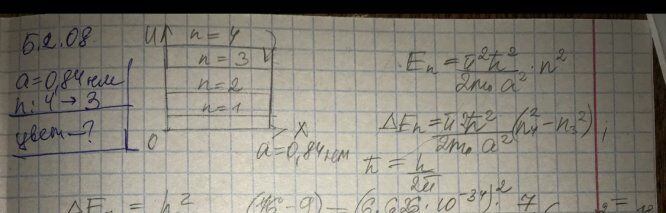 5.2.08
a=0,84 нм
n: 4 → 3
цвет —?
U
n = 4
n = 3
n = 2
n = 1
0
X
a=0,84 нм
Eₙ = π²ħ²/2m₀a² · n²
ΔEₙ = π²ħ²/2m₀a² (n₄² − n₃²) ;
ħ = h/2π
ΔEₙ = h² (16 − 9) = (6,626·10⁻³⁴)² · 7